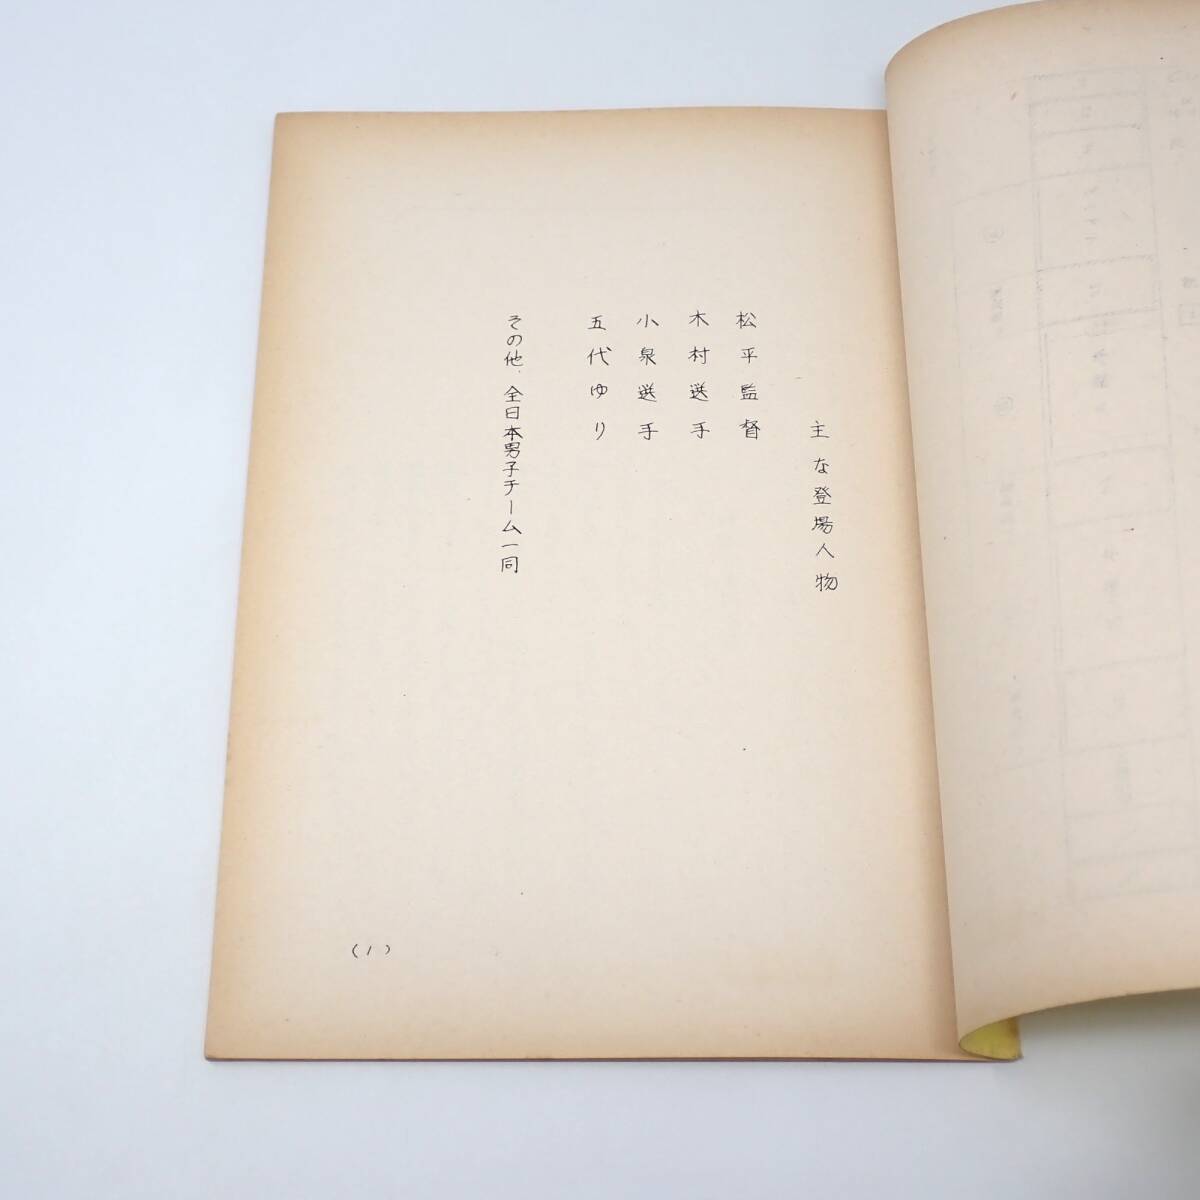 主な登場人物
松平監督
木村選手
小泉選手
五代ゆり
その他、全日本男子チーム一同
(1)